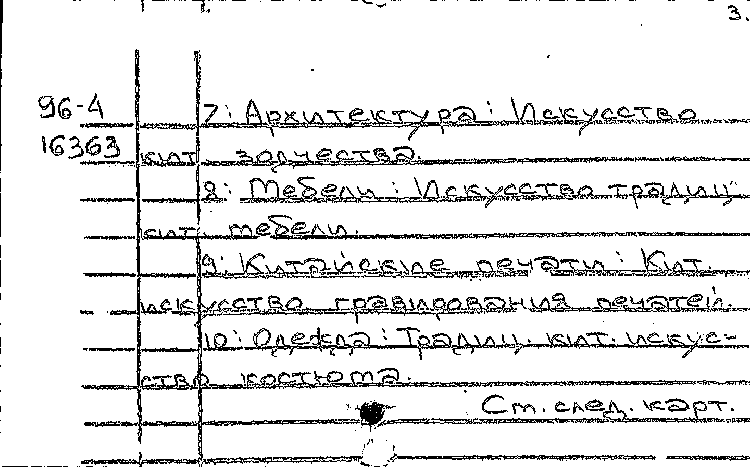 3.
96-4 7: Архитектура: Искусство
16363 кит. зодчества.
8: Мебели: Искусство традиц.
кит. мебели.
9: Китайские печати: Кит.
искусство гравирования печатей.
10: Одежда: Традиц. кит. искус-
ство костюма.
См. след. карт.